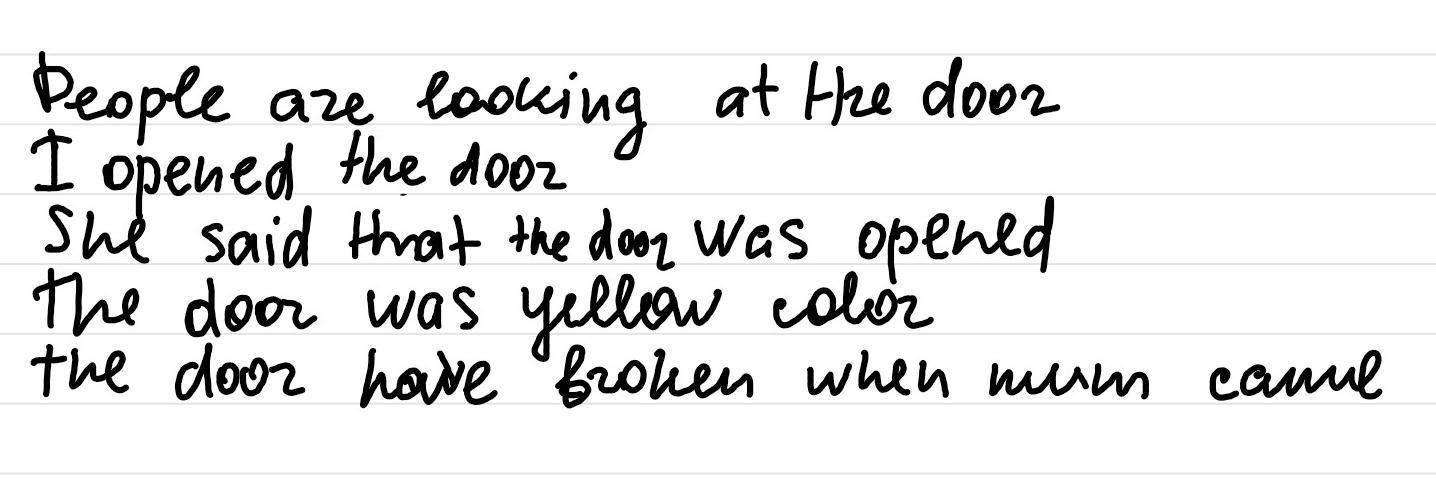 People are looking at the door
I opened the door
She said that the door was opened
The door was yellow color
the door have broken when mum came